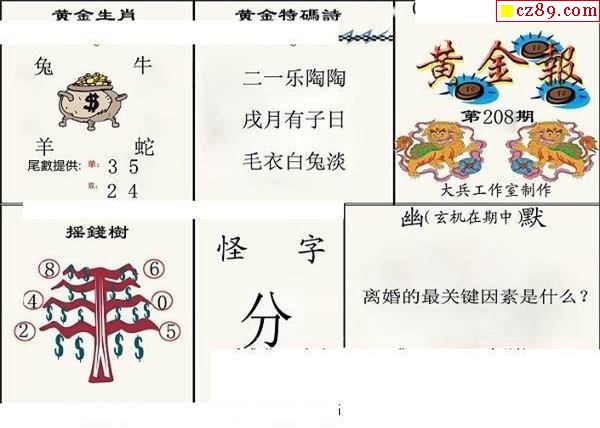 黄金生肖
兔 牛
$
羊 蛇
尾數提供: 单: 3 5
双: 2 4
黄金特碼詩
二一乐陶陶
戌月有子日
毛衣白兔淡
cz89.com
黄金報
第208期
大兵工作室制作
摇錢樹
8 6
4 0
2 5
怪 字
分
幽(玄机在期中)默
离婚的最关键因素是什么?